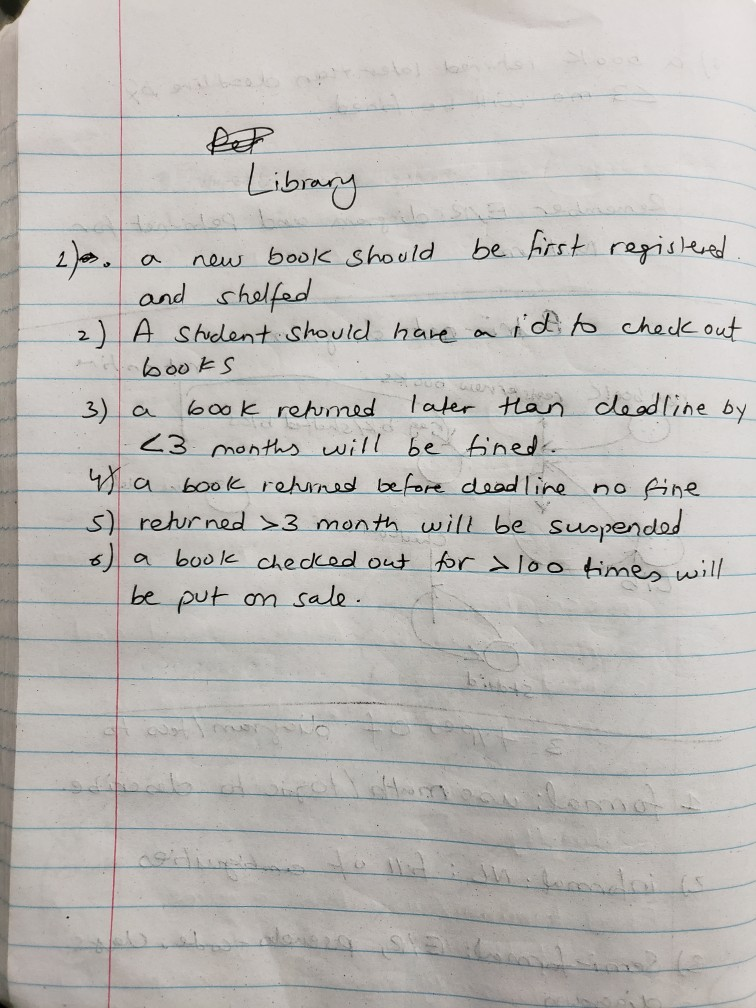 Library
1) a new book should be first registered
and shelfed
2) A student should have a id to check out
books
3) a book returned later than deadline by
<3 months will be fined.
4) a book returned before deadline no fine
5) returned >3 month will be suspended
6) a book checked out for >100 times will
be put on sale.